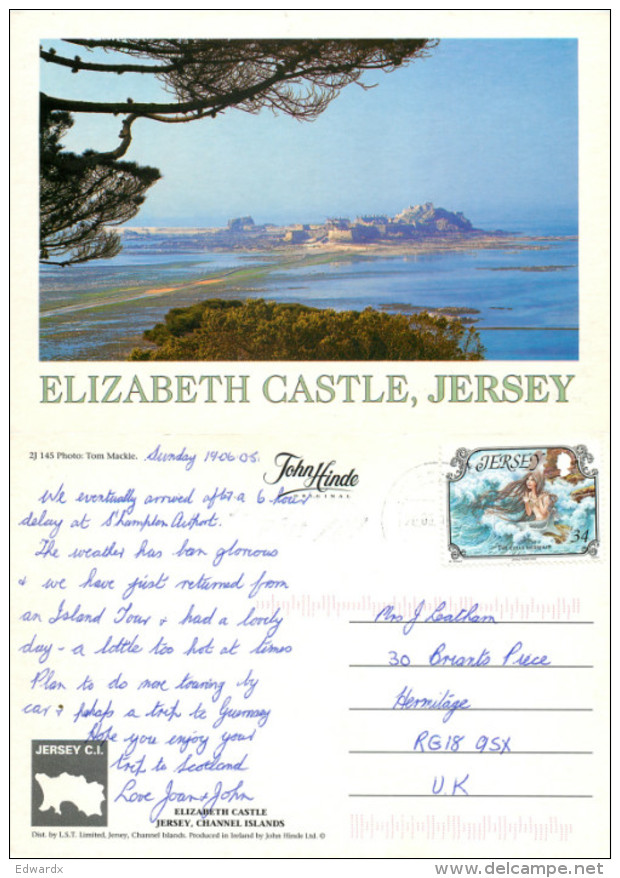 ELIZABETH CASTLE, JERSEY
2J 145 Photo: Tom Mackie.
Sunday 19.06.05.
John Hinde
ORIGINAL
We eventually arrived after a 6-hour
delay at S'hampton Airport.
The weather has been glorious
& we have just returned from
an Island Tour & had a lovely
day - a little too hot at times
Plan to do more touring by
car & perhaps a trip to Guernsey
Hope you enjoy your
trip to Scotland
Love Joan & John
JERSEY
34
Mrs J Leatham
30 Briants Piece
Hermitage
RG18 9SX
U.K
JERSEY C.I.
ELIZABETH CASTLE
JERSEY, CHANNEL ISLANDS
Dist. by L.S.T. Limited, Jersey, Channel Islands. Produced in Ireland by John Hinde Ltd. ©
Edwardx
delcampe.net